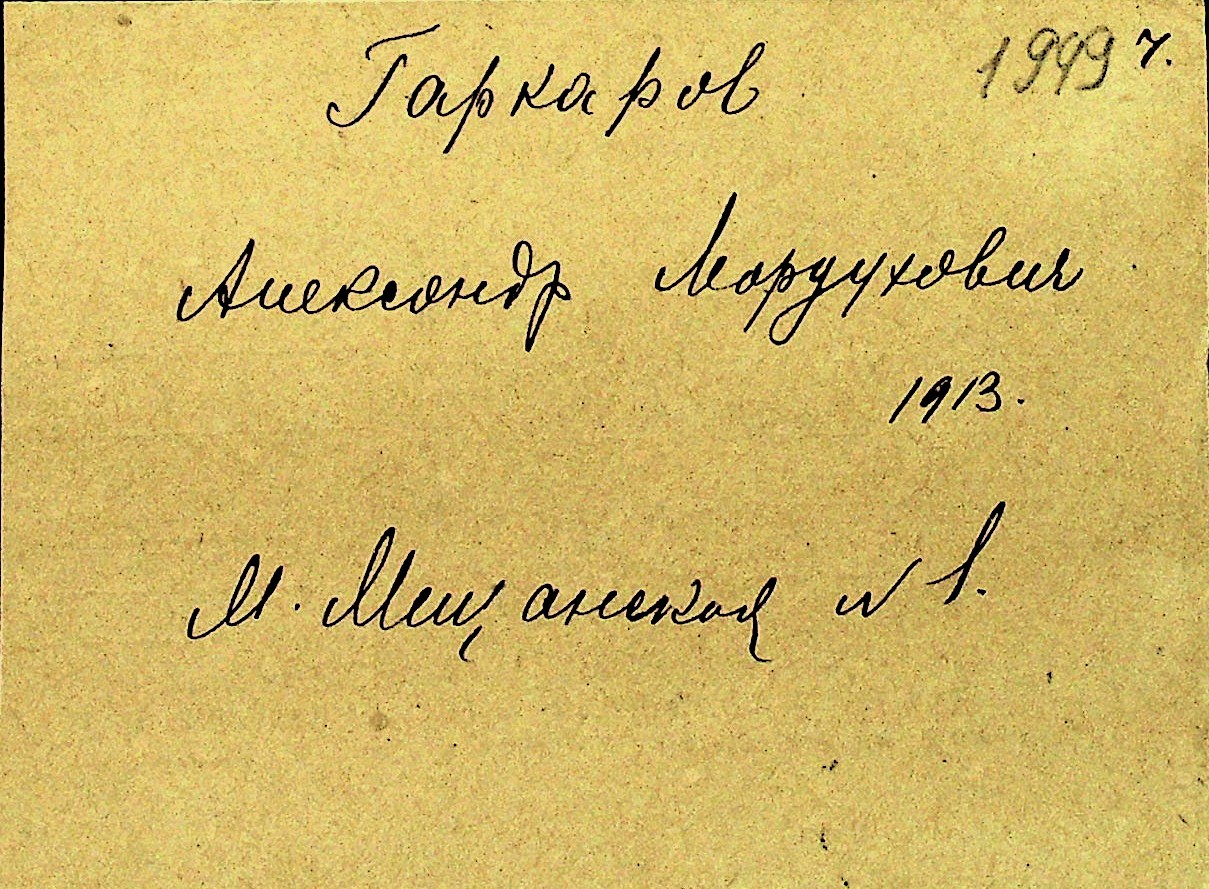 1949 г.
Гаркаров
Александр Мордухович
1913.
М. Мещанская № 1.